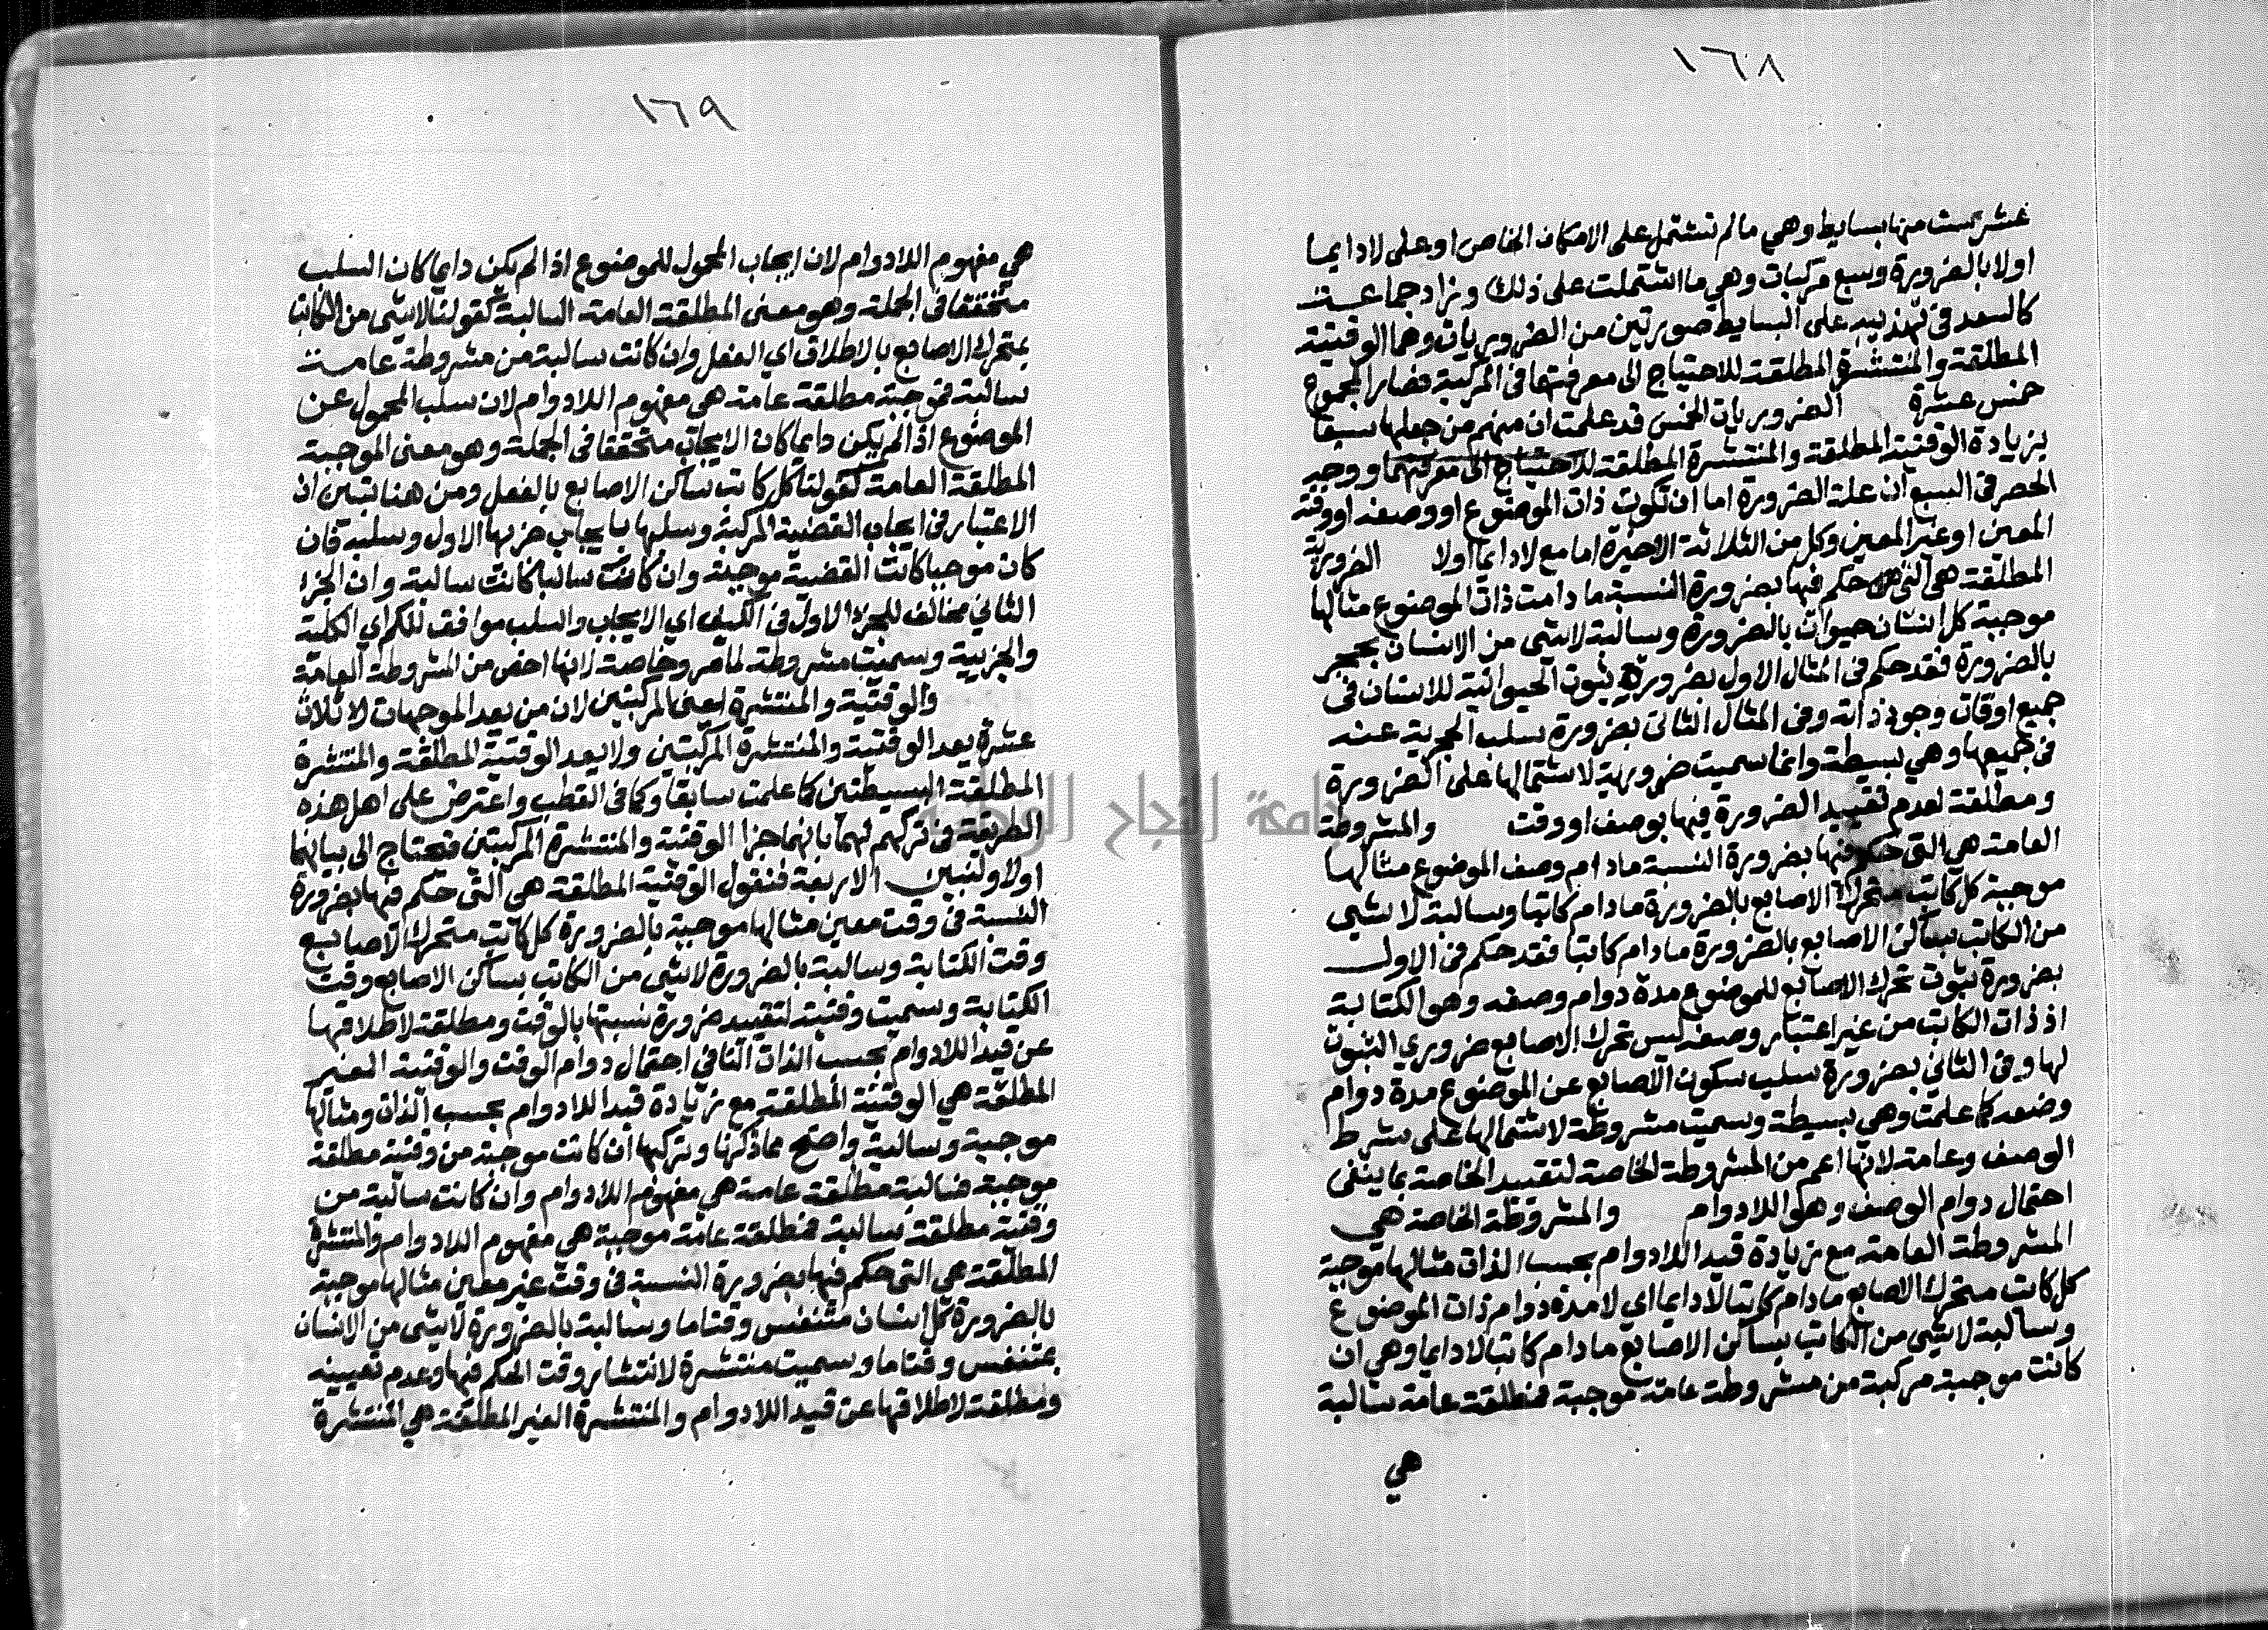 ١٦٨
عشر ست منها بسايط وهي ما لم تشتمل على الامكان الخاص او على لا دايما
اولا بالضرورة وسبع مركبات وهي ما اشتملت على ذلك وزاد جماعة
كالسعد في تهذيبه على البسايط صورتين من الضروريات وهما الوقتية
المطلقة والمنتشرة المطلقة للاحتياج الى معرفتهما في المركبة فصار المجموع
خمس عشرة الضروريات الخمس قد علمت ان منهم من جعلها سبعا
بزيادة الوقتية المطلقة والمنتشرة المطلقة للاحتياج الى معرفتهما ووجه
الحصر في السبع ان علة الضرورة اما ان تكون ذات الموضوع او وصفه او وقته
المعين او غير المعين وكل من الثلاثة الاخيرة اما مع لا دايما اولا الضرورية
المطلقة هي التي حكم فيها بضرورة النسبة ما دامت ذات الموضوع مثالها
موجبة كل انسان حيوان بالضرورة وسالبة لا شي من الانسان بحجر
بالضرورة فقد حكم في المثال الاول بضرورة ثبوت الحيوانية للانسان في
جميع اوقات وجود ذاته وفي المثال الثاني بضرورة سلب الحجرية عنه
في جميعها وهي بسيطة وانما سميت ضرورية لاشتمالها على الضرورة
ومطلقة لعدم تقييد الضرورة فيها بوصف او وقت والمشروطة
العامة هي التي حكم فيها بضرورة النسبة ما دام وصف الموضوع مثالها
موجبة كل كاتب متحرك الاصابع بالضرورة ما دام كاتبا وسالبة لا شي
من الكاتب بساكن الاصابع بالضرورة ما دام كاتبا فقد حكم في الاول
بضرورة ثبوت تحرك الاصابع للموضوع مدة دوام وصفه وهو الكتابة
اذ ذات الكاتب من غير اعتبار وصفه ليس تحرك الاصابع ضروري الثبوت
لها وفي الثاني بضرورة سلب سكون الاصابع عن الموضوع مدة دوام
وصفه كما علمت وهي بسيطة وسميت مشروطة لاشتمالها على شرط
الوصف وعامة لانها اعم من المشروطة الخاصة لتقييد الخاصة بما ينفى
احتمال دوام الوصف وهو اللادوام والمشروطة الخاصة هي
المشروطة العامة مع زيادة قيد اللادوام بحسب الذات مثالها موجبة
كل كاتب متحرك الاصابع ما دام كاتبا لا دايما اي لا مدة دوام ذات الموضوع
وسالبة لا شي من الكاتب بساكن الاصابع ما دام كاتبا لا دايما وهي ان
كانت موجبة مركبة من مشروطة عامة موجبة فمطلقة عامة سالبة
هي
١٦٩
هي مفهوم اللادوام لان ايجاب المحمول للموضوع اذا لم يكن دايما كان السلب
متحققا في الجملة وهو معنى المطلقة العامة السالبة كقولنا لا شي من الكاتب
بمتحرك الاصابع بالاطلاق اي الفعل وان كانت سالبة من مشروطة عامة
سالبة فموجبة مطلقة عامة هي مفهوم اللادوام لان سلب المحمول عن
الموضوع اذا لم يكن دايما كان الايجاب متحققا في الجملة وهو معنى الموجبة
المطلقة العامة كقولنا كل كاتب ساكن الاصابع بالفعل ومن هنا تبين ان
الاعتبار في ايجاب القضية المركبة وسلبها بايجاب جزيها الاول وسلبه فان
كان موجبا كانت القضية موجبة وان كان سالبا كانت سالبة وان الجزا
الثاني مخالف للجزء الاول في الكيف اي الايجاب والسلب موافق للكم اي الكلية
والجزيية وسميت مشروطة لما مر وخاصة لانها اخص من المشروطة العامة
والوقتية والمنتشرة اعني المركبتين لان من يعد الموجهات ثلاث
عشرة يعد الوقتية والمنتشرة المركبتين ولا يعد الوقتية المطلقة والمنتشرة
المطلقة البسيطتين كما علمت سابقا وكما في القطب واعترض على اهل هذه
الطريقة في تركهم لهما بانهما جزا الوقتية والمنتشرة المركبتين فتحتاج الى بيانهما
اولا ولتبين الاربعة فنقول الوقتية المطلقة هي التي حكم فيها بضرورة
النسبة في وقت معين مثالها موجبة بالضرورة كل كاتب متحرك الاصابع
وقت الكتابة وسالبة بالضرورة لا شي من الكاتب بساكن الاصابع وقت
الكتابة وسميت وقتية لتقييد ضرورة نسبتها بالوقت ومطلقة لاطلاقها
عن قيد اللادوام بحسب الذات النافي احتمال دوام الوقت والوقتية الغير
المطلقة هي الوقتية المطلقة مع زيادة قيد اللادوام بحسب الذات ومثالها
موجبة وسالبة واضح مما ذكرنا وتركبها ان كانت موجبة من وقتية مطلقة
موجبة فسالبة مطلقة عامة هي مفهوم اللادوام وان كانت سالبة من
وقتية مطلقة سالبة فمطلقة عامة موجبة هي مفهوم اللادوام والمنتشرة
المطلقة هي التي حكم فيها بضرورة النسبة في وقت غير معين مثالها موجبة
بالضرورة كل انسان متنفس وقتا ما وسالبة بالضرورة لا شي من الانسان
بمتنفس وقتا ما وسميت منتشرة لانتشار وقت الحكم فيها وعدم تعيينه
ومطلقة لاطلاقها عن قيد اللادوام والمنتشرة الغير المطلقة هي المنتشرة
جامعة النجاح الوطنية